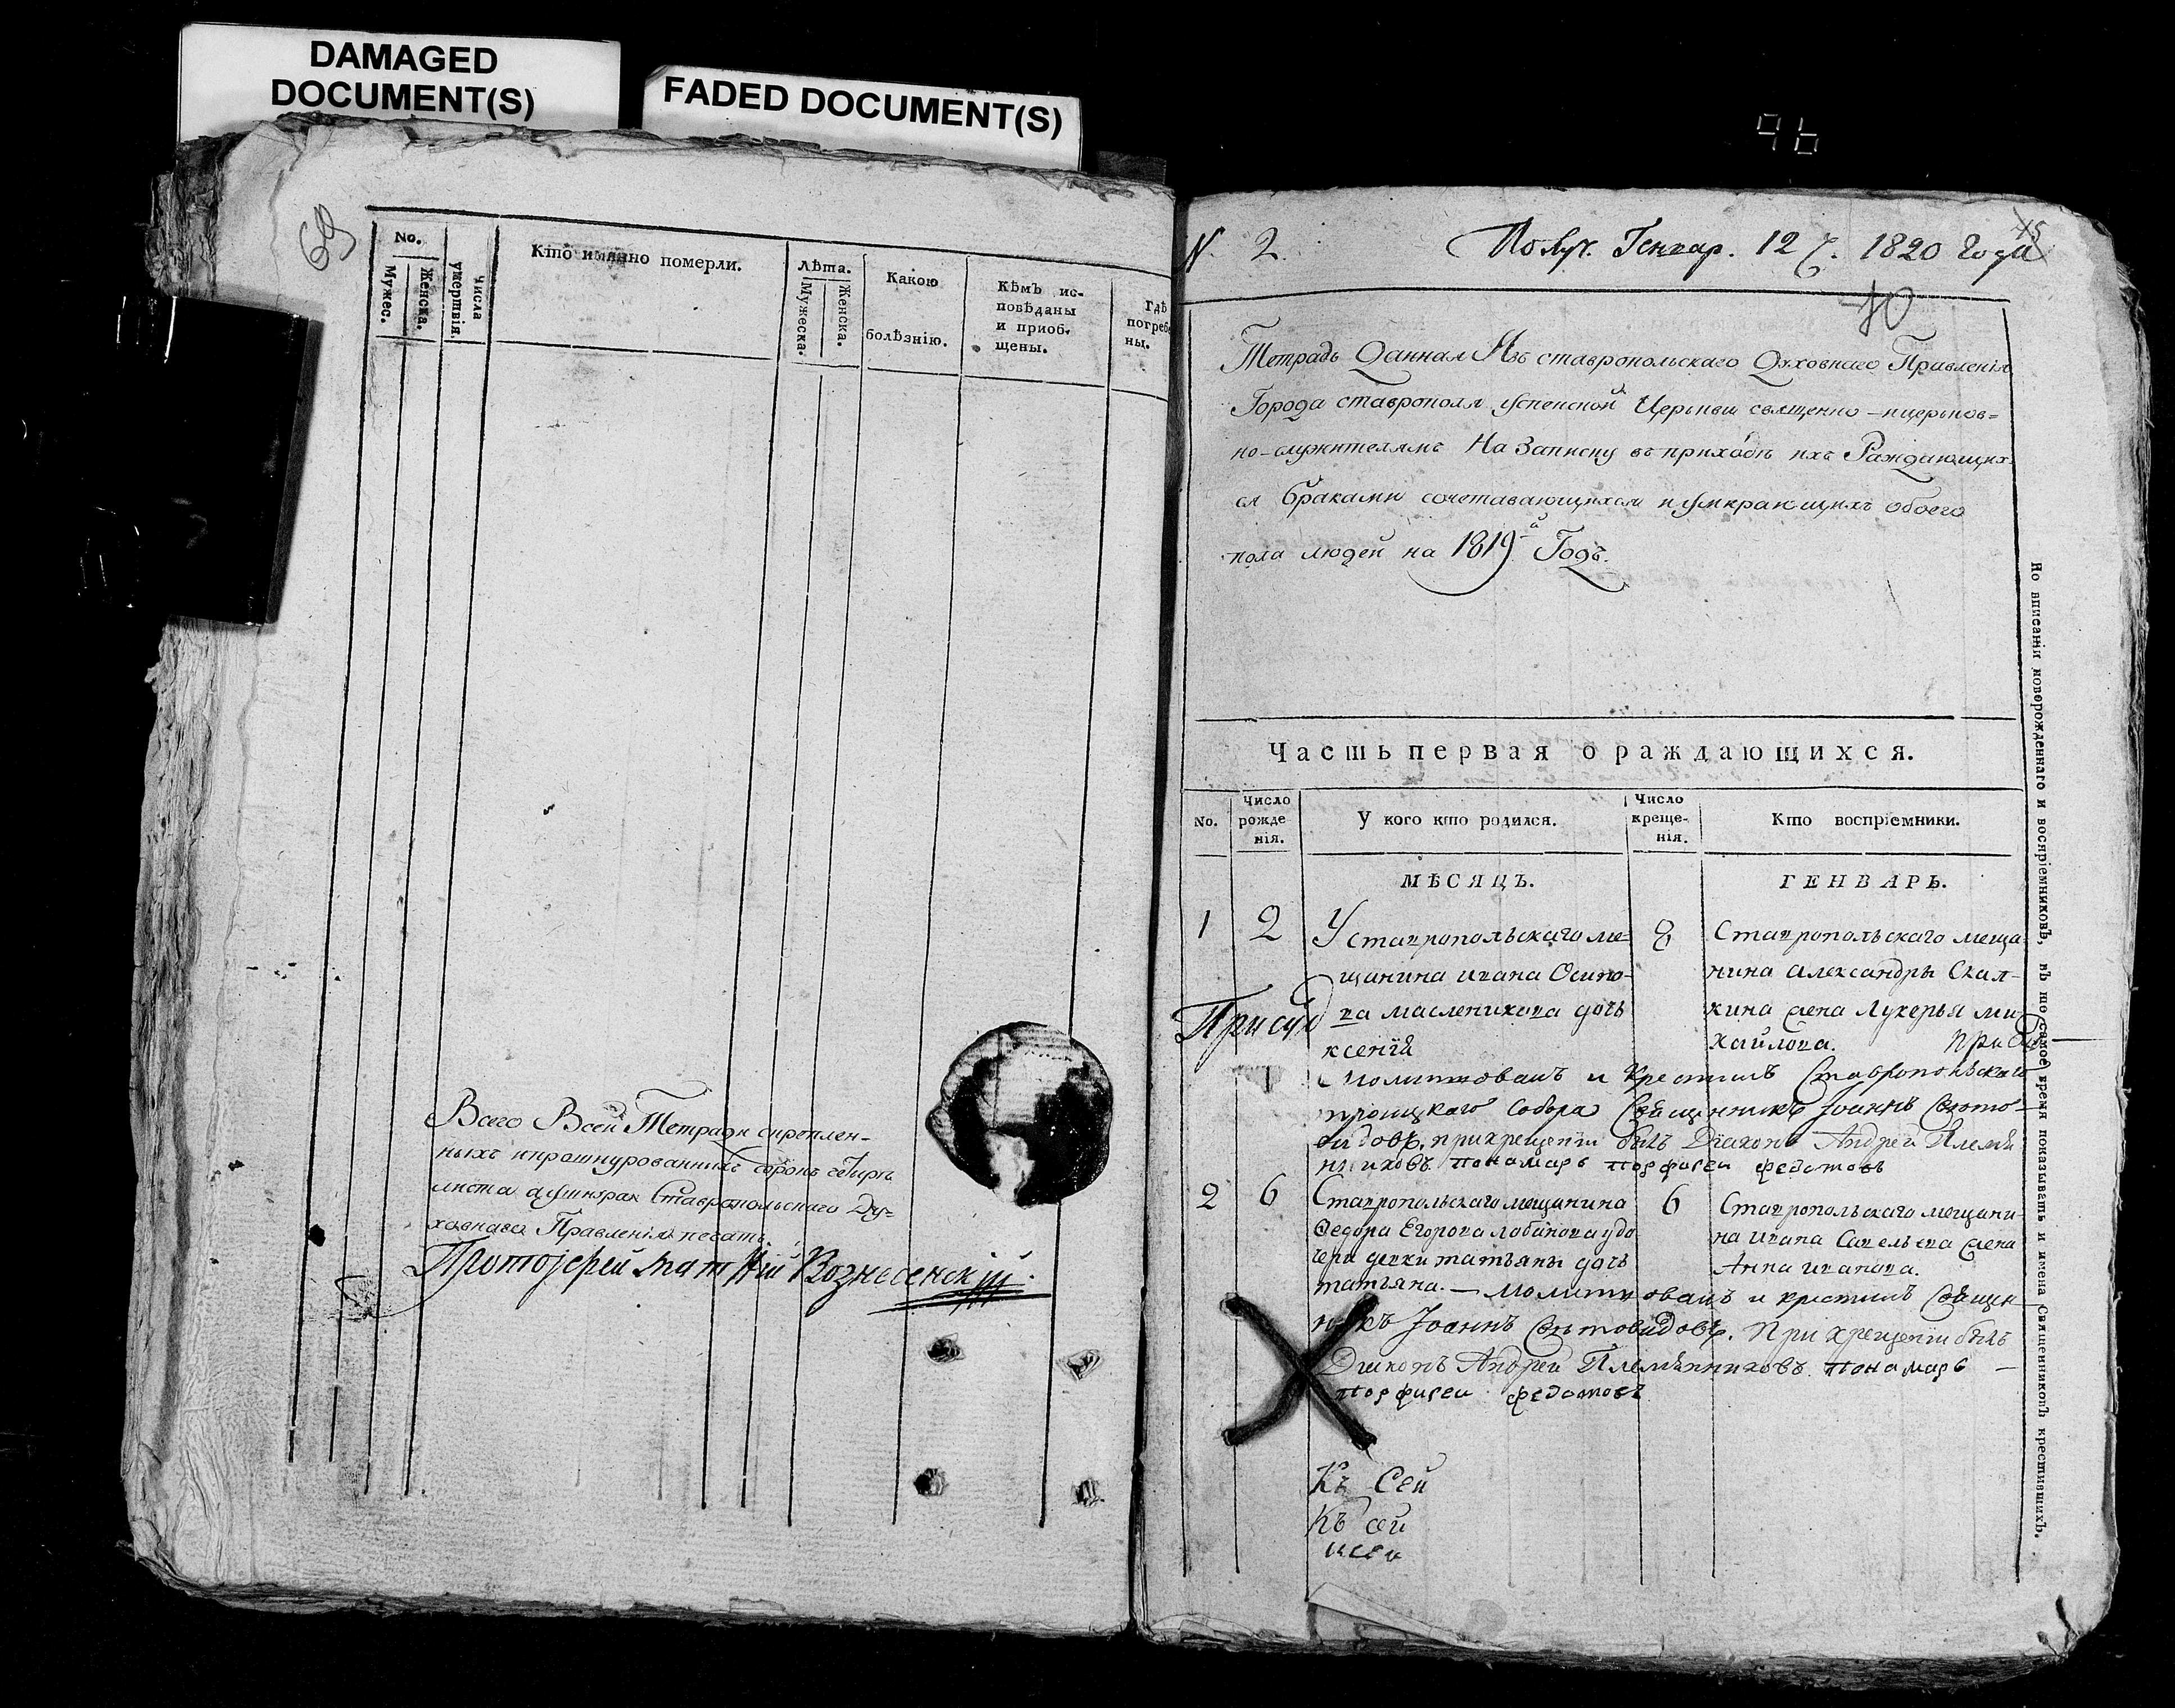 DAMAGED
DOCUMENT(S)
FADED DOCUMENT(S)
96
69
No.
Мужес.
Женска.
Числа
умертвія.
Кто имянно померли.
Лѣта.
Мужеска.
Женска.
Какою
болѣзнію.
Кѣмъ ис-
повѣданы
и приоб-
щены.
Гдѣ
погребе
ны.
Всего Всей Тетради скреплен-
ныхъ и прошнурованныхъ сорокъ четыре
листа Ставропольскаго Ду-
ховнаго Правленія печать
Протоіерей Матѳій Вознесенскій.
N. 2.
Получ. Генвар. 12 ч. 1820 года
40
Тетрадь Данная Изъ ставропольскаго Духовнаго Правленія
Города ставрополя Успенской Церькви священно-ицерьков=
но-служителямъ На Записку въ приходѣ ихъ Раждающих
ся браками сочетавающихся и умирающихъ обоего
пола людей на 1819й Годъ.
Часть первая о раждающихся.
No.
Число
рожде
нія.
У кого кто родился.
Число
креще-
нія.
Кто воспріемники.
МѢСЯЦЪ. ГЕНВАРЬ.
1 2 У ставропольскаго ме- 8 Ставропольскаго меща
щанина ивана Осипо- нина александры Скал-
ва масленикова дочь кина жена Лукерья ми
ксенія хайлова.
Молитвовалъ и Крестилъ Ставропольскаго
троицкаго Собора Священникъ Іоаннъ Свято-
видовъ, при крещеніи былъ Діаконъ Андрей Племя
нниковъ пономарь порфирей федотовъ
2 6 Ставропольскаго мещанина 6 Ставропольскаго мещани-
Федора Егорова лобанова у до на ивана Савельева жена
чери девки татьяны дочь Анна иванова.
татьяна. — молитвовалъ и крестилъ Священ-
никъ Іоаннъ Святовидовъ. При крещеніи былъ
Діаконъ Андрей Племянниковъ пономарь —
порфирей федотовъ
Къ Сей
Къ сей
Но вписаніи новорожденнаго и воспріемниковъ, въ то самое время показывать и имена Священниковъ крестившихъ.